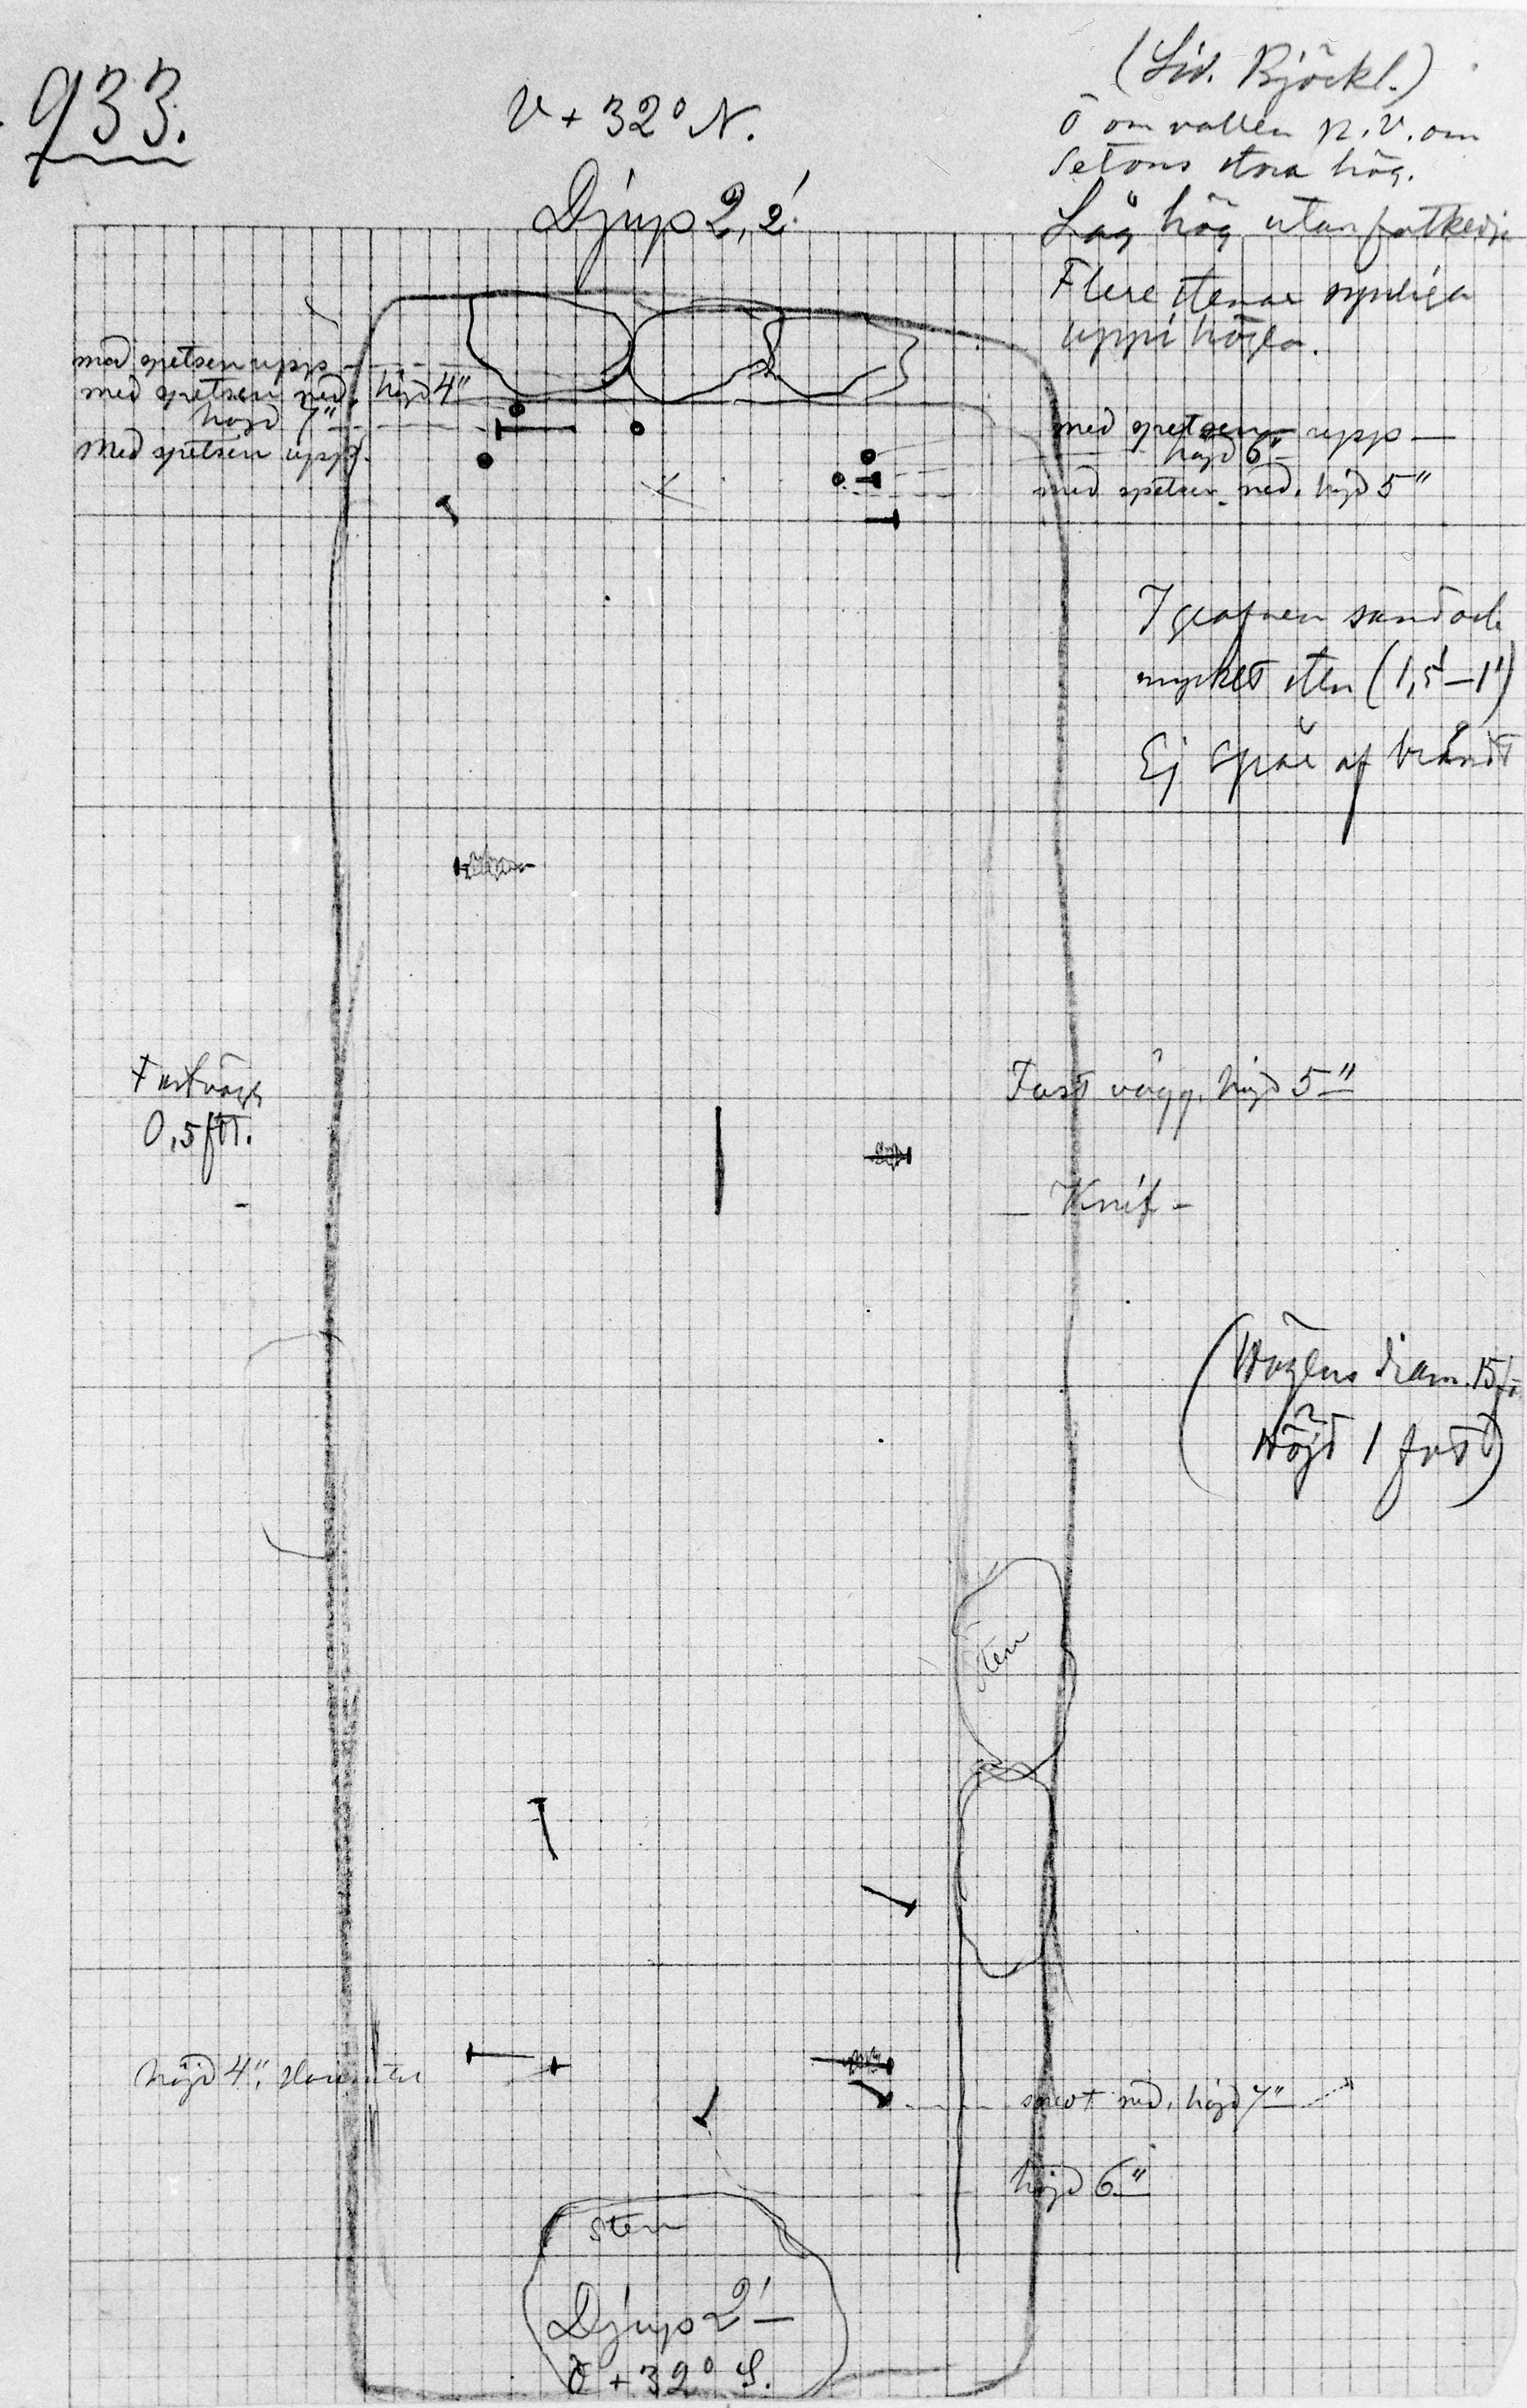 933.
V + 32° N.
Djup 2,2'.
(Sid. Björkl.)
Ö om vallen N.V. om
Setons stora hög.
Låg hög utan fotkedja
Flere stenar synliga
uppi högen.
med spetsen upp
med spetsen ned, höjd 4"
höjd 7"
Med spetsen upp.
med spetsen upp
höjd 6"
med spetsen ned. höjd 5"
I grafven sand och
mycket sten (1,5'–1')
Ej spår af brändt
Fast vägg
0,5 fot.
Fast vägg. höjd 5"
Knif
(Högens diam. 15 fot
Höjd 1 fot)
sten
höjd 4",
snedt ned, höjd 7"
höjd 6"
sten
Djup 2'
Ö + 32° S.